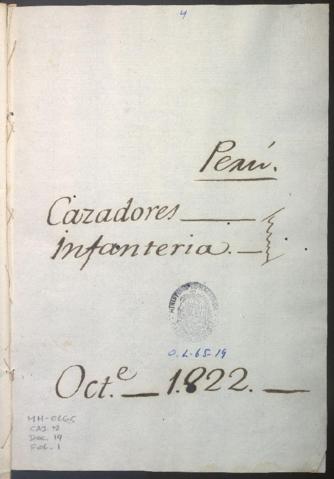 4
Perú.
Cazadores
Infanteria.
O.L.65-19
Oct.e 1.822.
MH-OL65
CAJ. 72
Doc. 19
Fol. 1